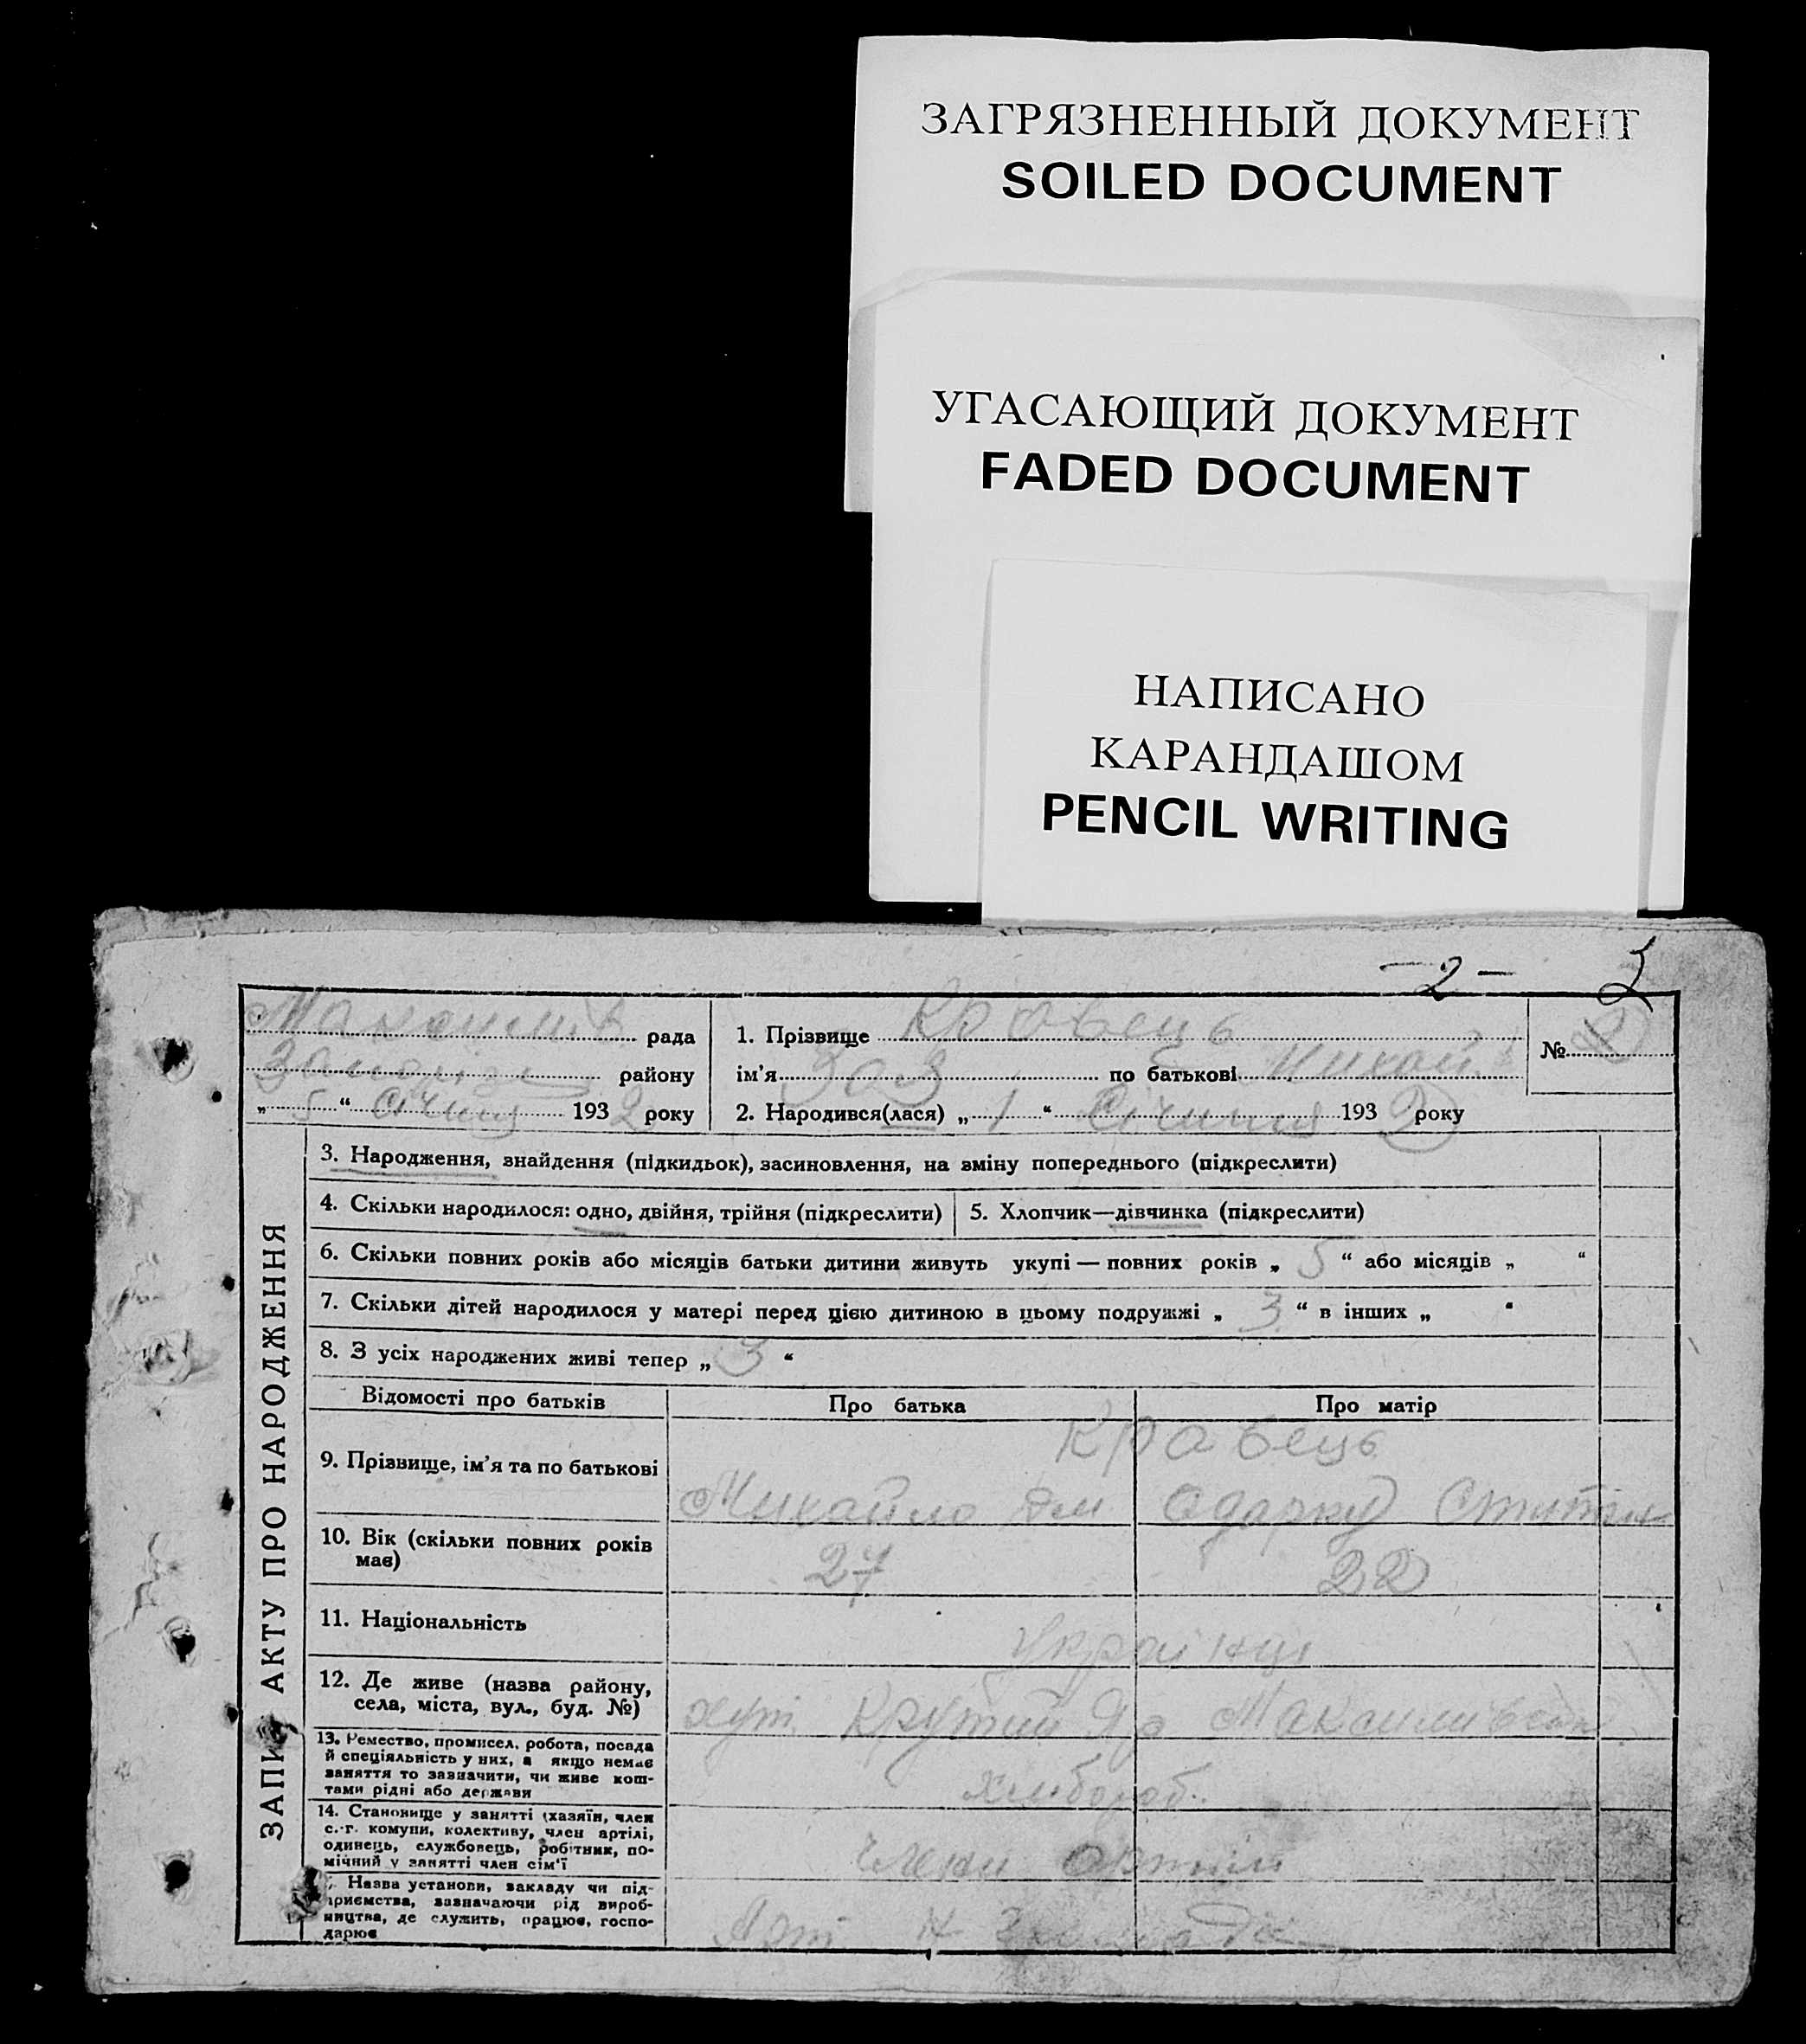 ЗАГРЯЗНЕННЫЙ ДОКУМЕНТ
SOILED DOCUMENT
УГАСАЮЩИЙ ДОКУМЕНТ
FADED DOCUMENT
НАПИСАНО
КАРАНДАШОМ
PENCIL WRITING
— 2 —
рада
району
„ 5 “ Січня 193 2 року
1. Прізвище Кравець
ім’я по батькові Михай
2. Народився(лася) „ 1 “ Січиня 193 2 року
№ 2
ЗАПИС АКТУ ПРО НАРОДЖЕННЯ
3. Народження, знайдення (підкидьок), засиновлення, на зміну попереднього (підкреслити)
4. Скільки народилося: одно, двійня, трійня (підкреслити) 5. Хлопчик—дівчинка (підкреслити)
6. Скільки повних років або місяців батьки дитини живуть укупі — повних років „ 5 “ або місяців „ “
7. Скільки дітей народилося у матері перед цією дитиною в цьому подружжі „ 3 “ в інших „ “
8. З усіх народжених живі тепер „ 3 “
Відомості про батьків Про батька Про матір
9. Прізвище, ім’я та по батькові
Кравець
Михайло Одарку
10. Вік (скільки повних років
має)
27 22
11. Національність
Українці
12. Де живе (назва району,
села, міста, вул., буд. №)
хут. Крутий Яр
13. Ремество, промисел, робота, посада
й спеціяльність у них, а якщо немає
заняття то зазначити, чи живе кош-
тами рідні або держави
Хлібороб.
14. Становище у занятті (хазяїн, член
с.-г. комуни, колективу, член артілі,
одинець, службовець, робітник, по-
мічний у занятті член сім’ї
члени артілі
Назва установи, закладу чи під-
приємства, зазначаючи рід вироб-
ництва, де служить, працює, госпо-
дарює